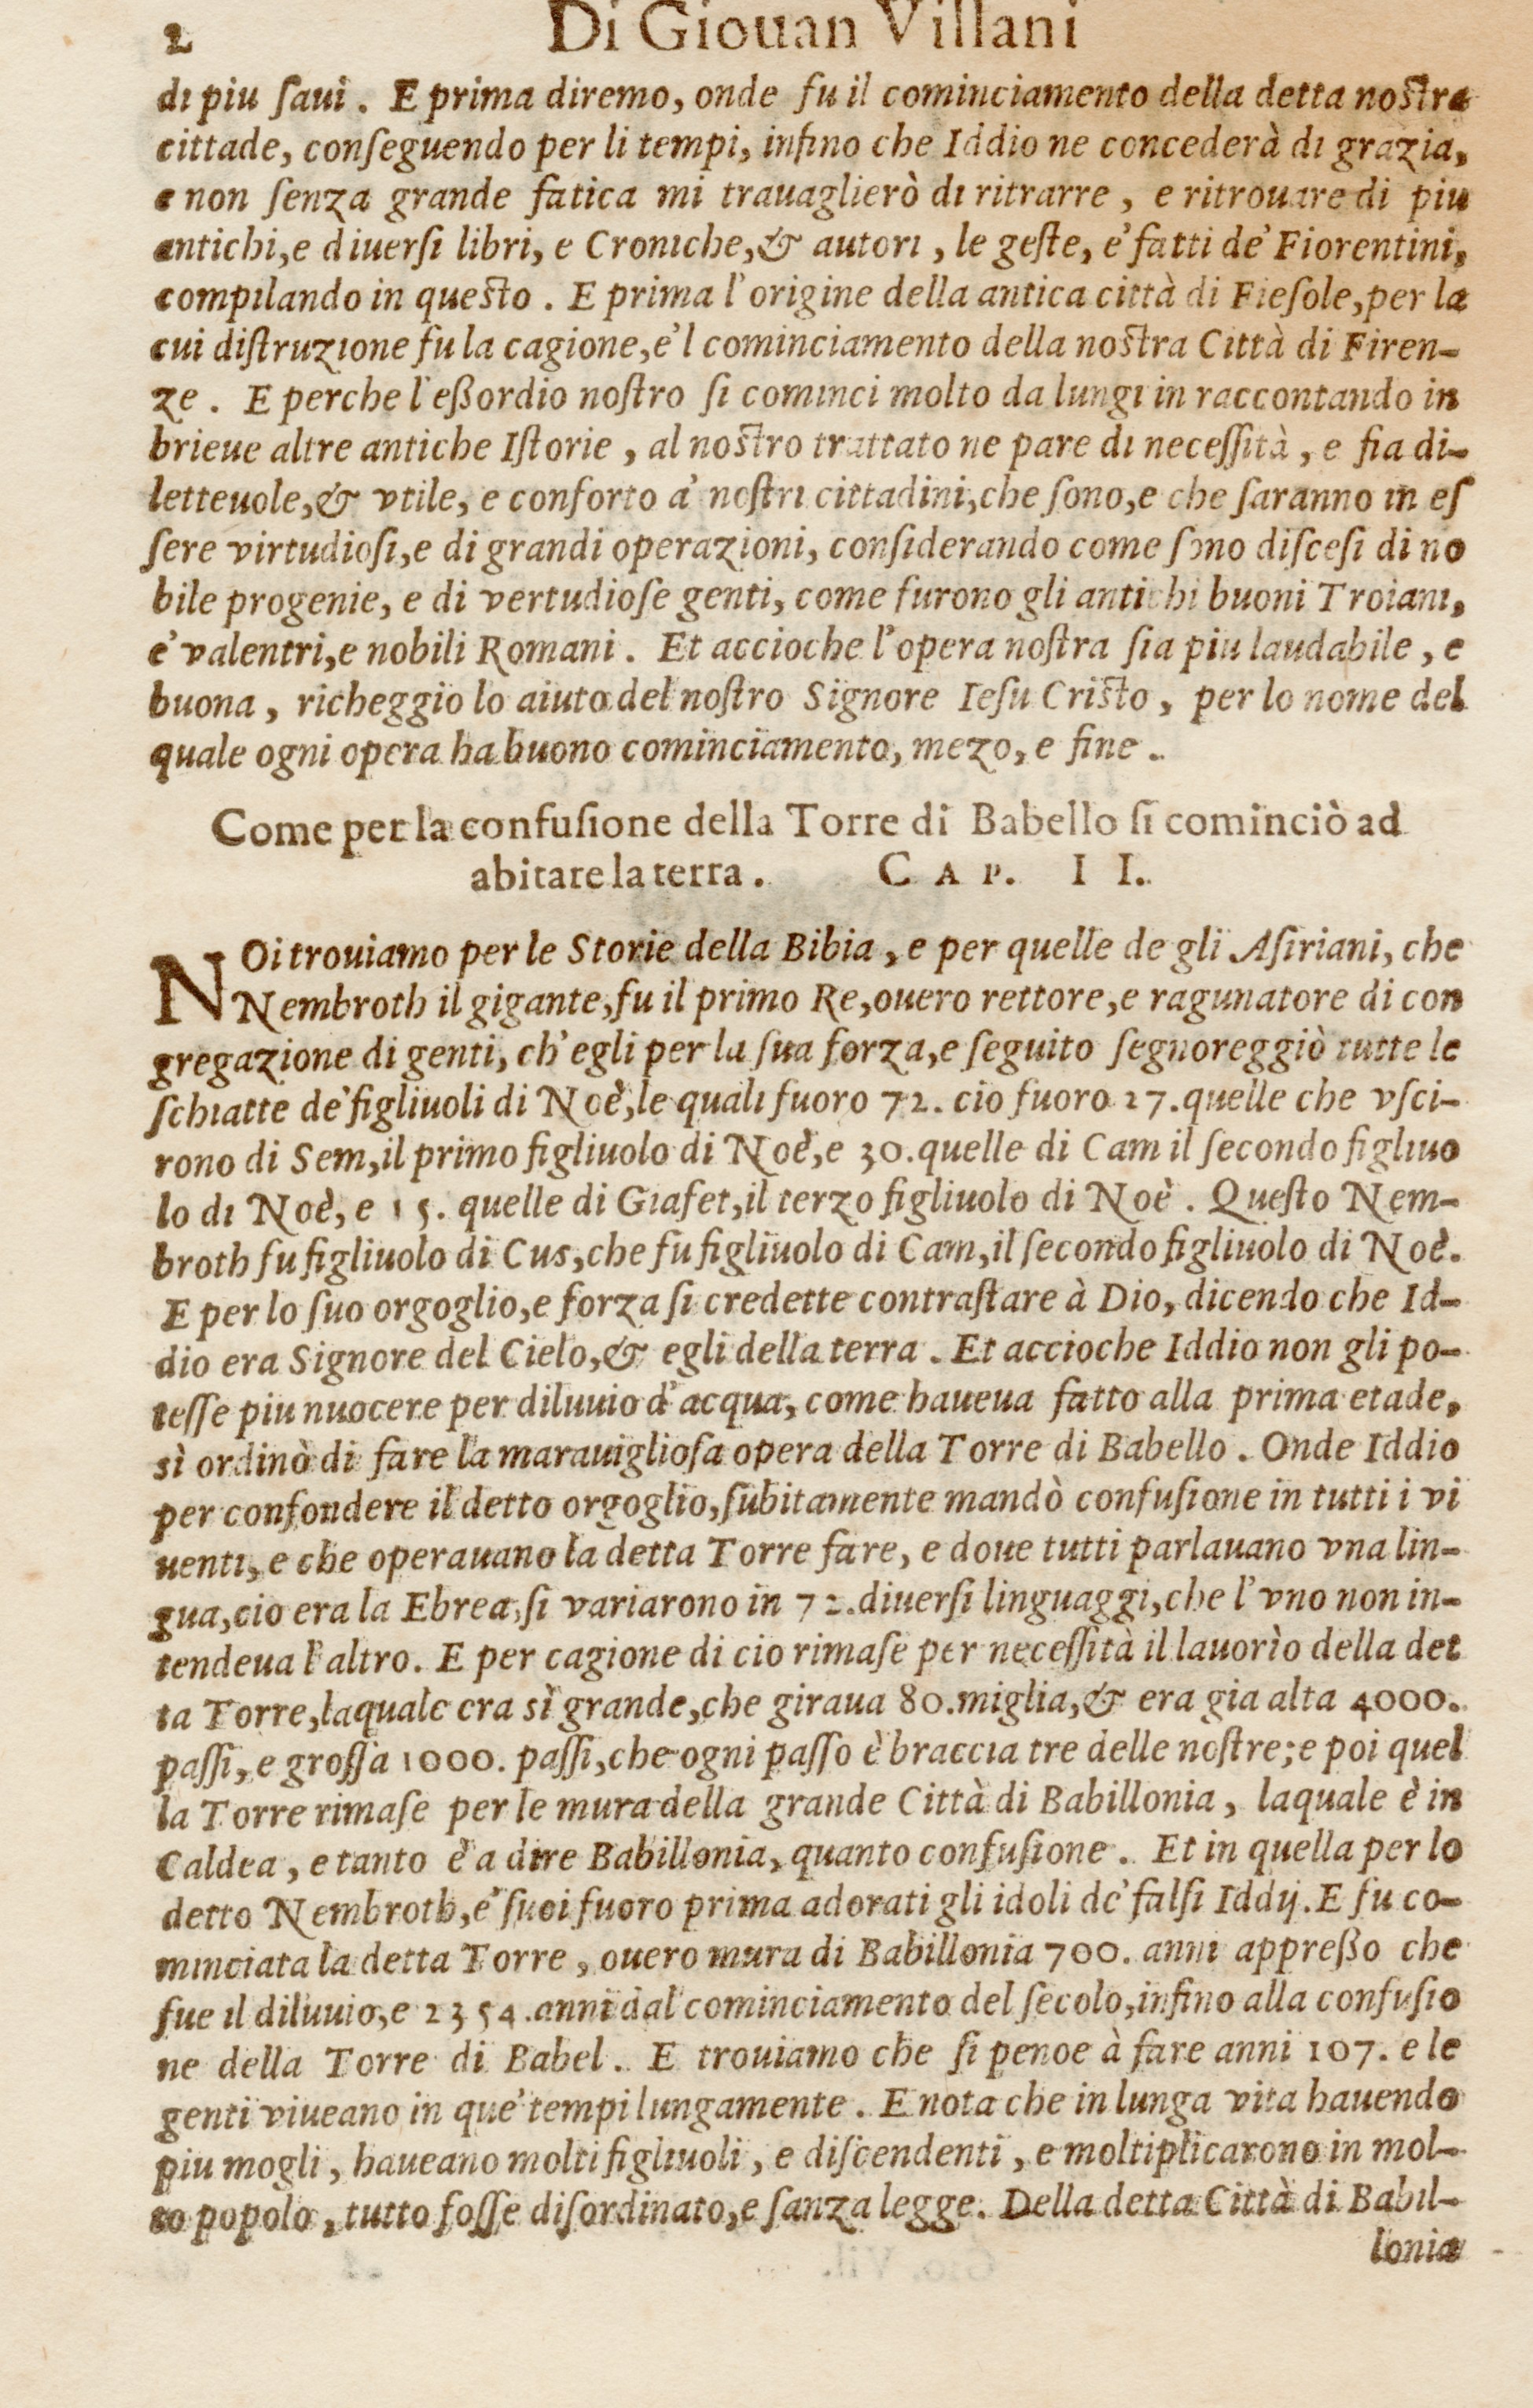 2 Di Giouan Villani
di piu ſaui. E prima diremo, onde fu il cominciamento della detta noſtra
cittade, conſeguendo per li tempi, infino che Iddio ne concederà di grazia,
e non ſenza grande fatica mi trauaglierò di ritrarre, e ritrouare di piu
antichi, e diuerſi libri, e Croniche, & autori, le geſte, e' fatti de' Fiorentini,
compilando in queſto. E prima l'origine della antica città di Fieſole, per la
cui diſtruzione fu la cagione, e'l cominciamento della noſtra Città di Firen-
ze. E perche l'eßordio noſtro ſi cominci molto da lungi in raccontando in
brieue altre antiche Iſtorie, al noſtro trattato ne pare di neceſſità, e fia di-
letteuole, & vtile, e conforto a' noſtri cittadini, che ſono, e che ſaranno in eſ
ſere virtudioſi, e di grandi operazioni, conſiderando come ſono diſceſi di no
bile progenie, e di vertudioſe genti, come furono gli antichi buoni Troiani,
e' valentri, e nobili Romani. Et accioche l'opera noſtra ſia piu laudabile, e
buona, richeggio lo aiuto del noſtro Signore Ieſu Criſto, per lo nome del
quale ogni opera ha buono cominciamento, mezo, e fine.
Come per la confuſione della Torre di Babello ſi cominciò ad
abitare la terra. CAP. II.
NOi trouiamo per le Storie della Bibia, e per quelle de gli Aſiriani, che
Nembroth il gigante, fu il primo Re, ouero rettore, e ragunatore di con
gregazione di genti, ch'egli per la ſua forza, e ſeguito ſegnoreggiò tutte le
ſchiatte de' figliuoli di Noè, le quali fuoro 72. cio fuoro 27. quelle che vſci-
rono di Sem, il primo figliuolo di Noè, e 30. quelle di Cam il ſecondo figliuo
lo di Noè, e 15. quelle di Giafet, il terzo figliuolo di Noè. Queſto Nem-
broth fu figliuolo di Cus, che fu figliuolo di Cam, il ſecondo figliuolo di Noè.
E per lo ſuo orgoglio, e forza ſi credette contraſtare à Dio, dicendo che Id-
dio era Signore del Cielo, & egli della terra. Et accioche Iddio non gli po-
teſſe piu nuocere per diluuio d'acqua, come haueua fatto alla prima etade,
sì ordinò di fare la marauiglioſa opera della Torre di Babello. Onde Iddio
per confondere il detto orgoglio, ſubitamente mandò confuſione in tutti i vi
uenti, e che operauano la detta Torre fare, e doue tutti parlauano vna lin-
gua, cio era la Ebrea, ſi variarono in 72. diuerſi linguaggi, che l'vno non in-
tendeua l'altro. E per cagione di cio rimaſe per neceſſità il lauorìo della det
ta Torre, laquale era sì grande, che giraua 80. miglia, & era gia alta 4000.
paſſi, e groſſa 1000. paſſi, che ogni paſſo è braccia tre delle noſtre; e poi quel
la Torre rimaſe per le mura della grande Città di Babillonia, laquale è in
Caldea, e tanto è a dire Babillonia, quanto confuſione. Et in quella per lo
detto Nembroth, e' ſuoi fuoro prima adorati gli idoli de' falſi Iddij. E fu co-
minciata la detta Torre, ouero mura di Babillonia 700. anni appreßo che
fue il diluuio, e 2354. anni dal cominciamento del ſecolo, infino alla confuſio
ne della Torre di Babel. E trouiamo che ſi penoe à fare anni 107. e le
genti viueano in que' tempi lungamente. E nota che in lunga vita hauendo
piu mogli, haueano molti figliuoli, e diſcendenti, e moltiplicarono in mol-
to popolo, tutto foſſe diſordinato, e ſanza legge. Della detta Città di Babil-
lonia